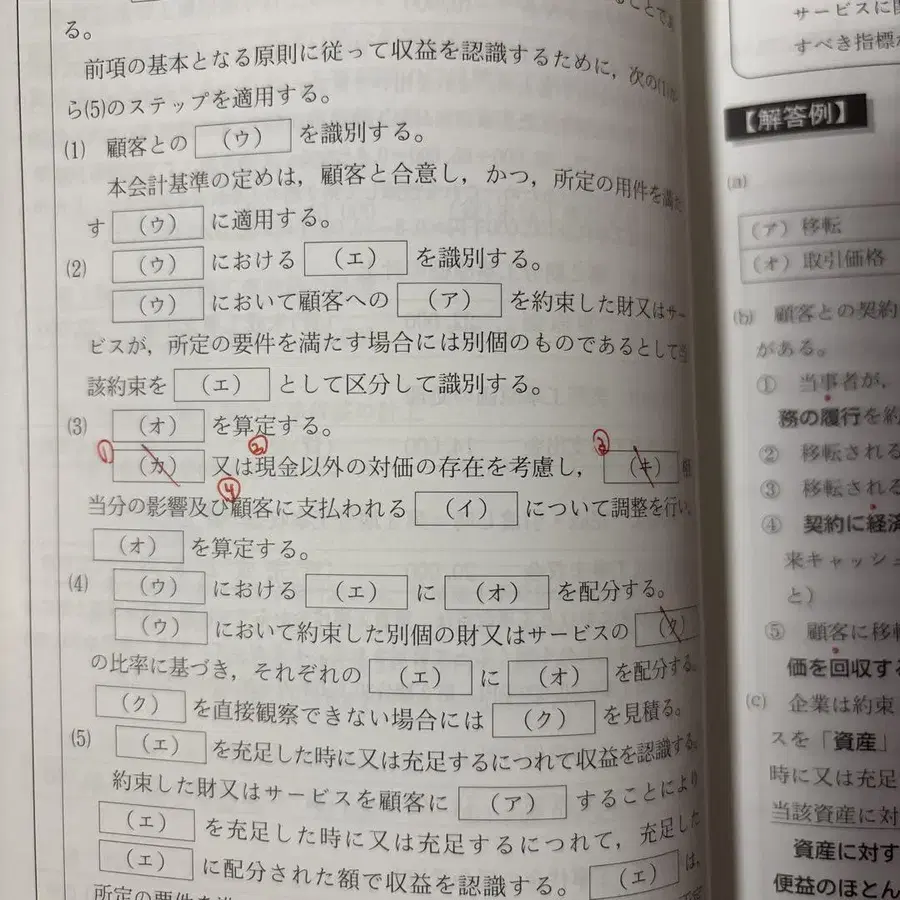 る。
前項の基本となる原則に従って収益を認識するために，次の(1)か
ら(5)のステップを適用する。
(1) 顧客との （ウ） を識別する。
本会計基準の定めは，顧客と合意し，かつ，所定の用件を満た
す （ウ） に適用する。
(2) （ウ） における （エ） を識別する。
（ウ） において顧客への （ア） を約束した財又はサー
ビスが，所定の要件を満たす場合には別個のものであるとして
該約束を （エ） として区分して識別する。
(3) （オ） を算定する。
① ② ③
（カ） 又は現金以外の対価の存在を考慮し， （キ）
④
当分の影響及び顧客に支払われる （イ） について調整を行い，
（オ） を算定する。
(4) （ウ） における （エ） に （オ） を配分する。
（ウ） において約束した別個の財又はサービスの （ク）
の比率に基づき，それぞれの （エ） に （オ） を配分する。
（ク） を直接観察できない場合には （ク） を見積る。
(5) （エ） を充足した時に又は充足するにつれて収益を認識する。
約束した財又はサービスを顧客に （ア） することにより
（エ） を充足した時に又は充足するにつれて，充足した
（エ） に配分された額で収益を認識する。 （エ） は，
所定の要件を
サービスに
すべき指標
【解答例】
(a)
（ア）移転
（オ）取引価格
(b) 顧客との契約
がある。
① 当事者が，
務の履行を約
② 移転される
③ 移転される
④ 契約に経済
来キャッシュ
と）
⑤ 顧客に移
価を回収する
(c) 企業は約束
スを「資産」
時に又は充足
当該資産に対
資産に対す
便益のほとん